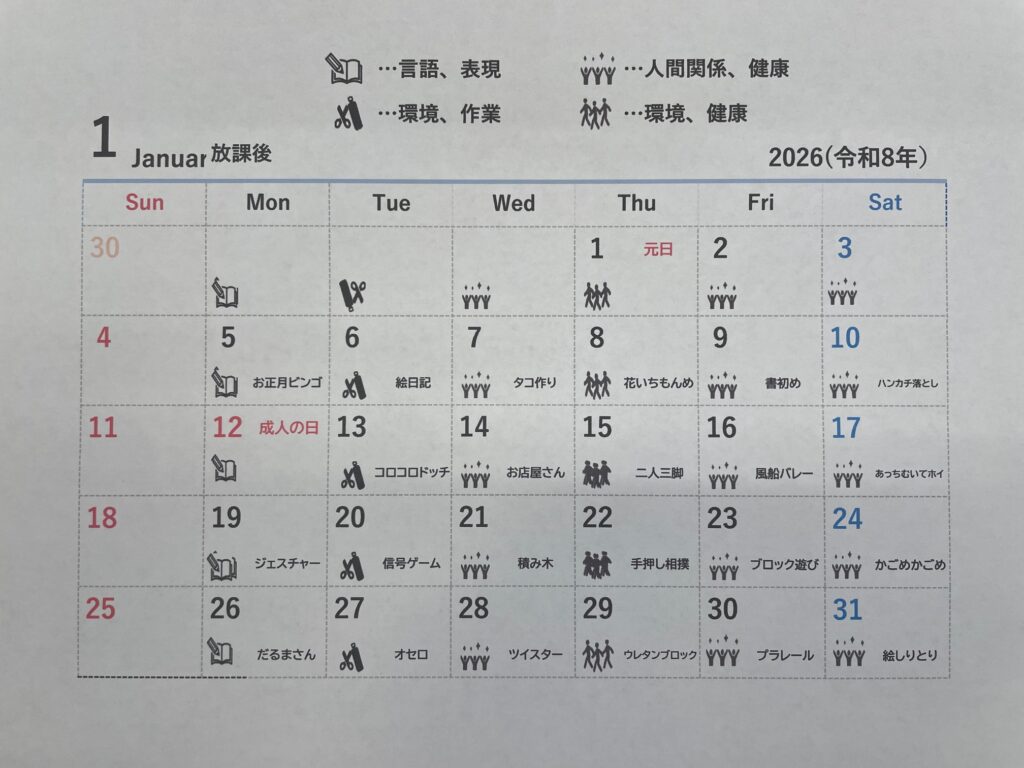 …言語、表現 …人間関係、健康
…環境、作業 …環境、健康
1 Januar 放課後 2026(令和8年)
Sun Mon Tue Wed Thu Fri Sat
30 1 元日 2 3
4 5 6 7 8 9 10
お正月ビンゴ 絵日記 タコ作り 花いちもんめ 書初め ハンカチ落とし
11 12 成人の日 13 14 15 16 17
コロコロドッチ お店屋さん 二人三脚 風船バレー あっちむいてホイ
18 19 20 21 22 23 24
ジェスチャー 信号ゲーム 積み木 手押し相撲 ブロック遊び かごめかごめ
25 26 27 28 29 30 31
だるまさん オセロ ツイスター ウレタンブロック プラレール 絵しりとり